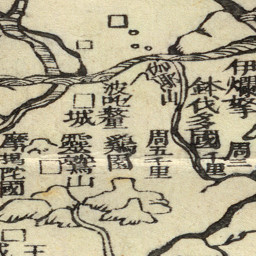 伊爛拏
鉢伐多國
周三
千里
伽耶山
周五千里
波吒釐
城
雞園
靈鷲山
摩揭陀國
王
城